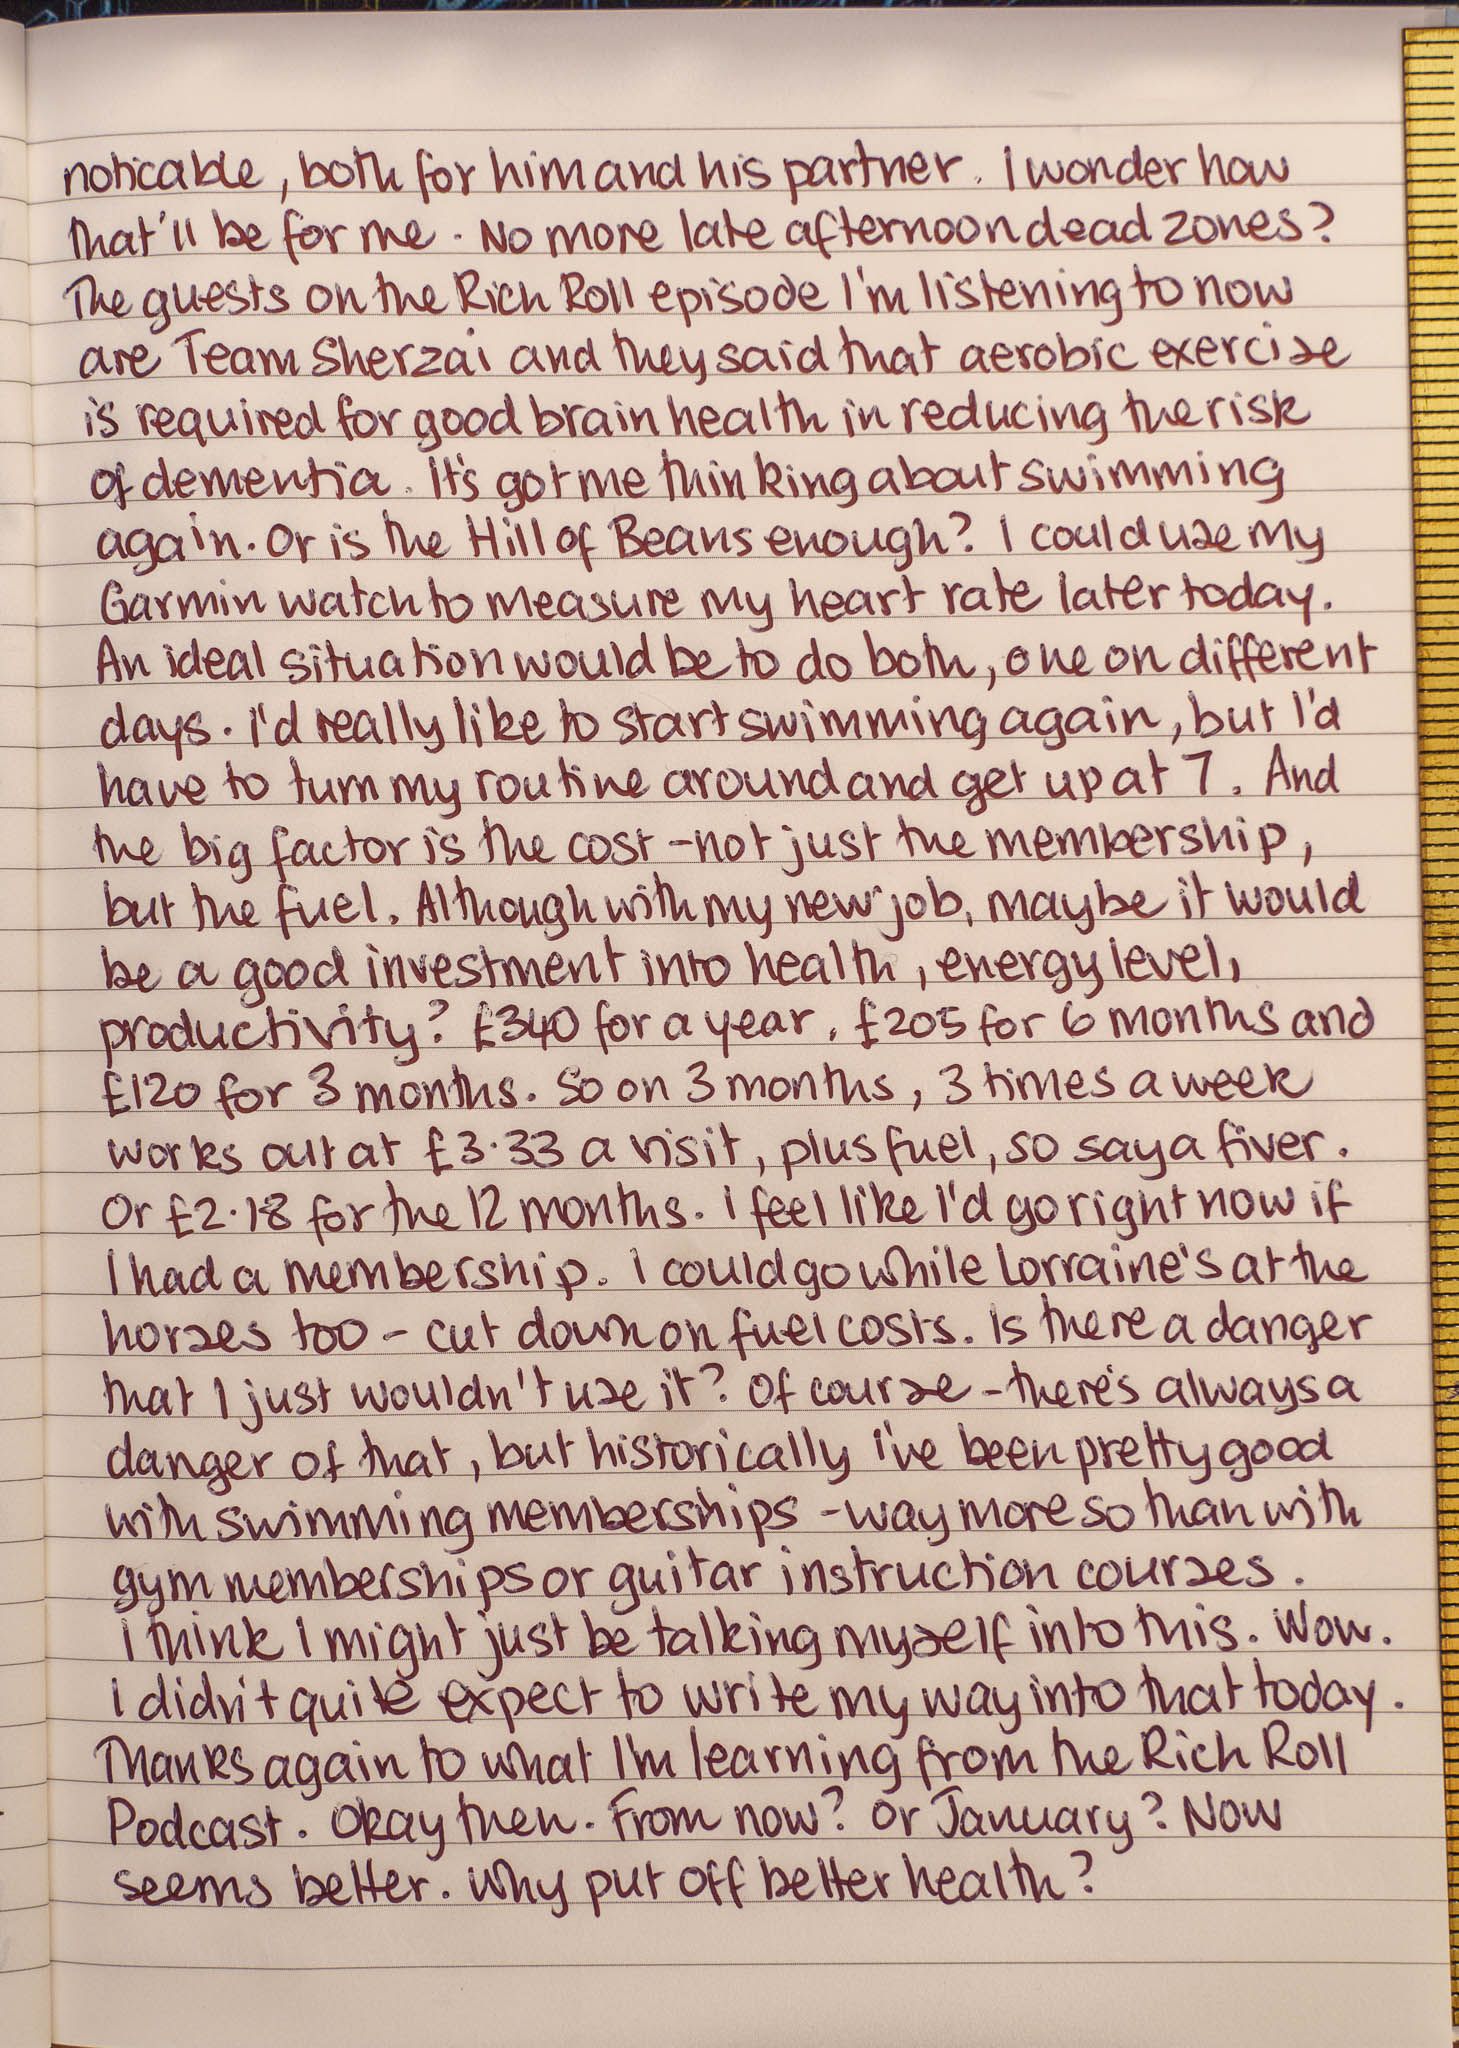 noticable, both for him and his partner. I wonder how
that'll be for me. No more late afternoon dead zones?
The guests on the Rich Roll episode I'm listening to now
are Team Sherzai and they said that aerobic exercise
is required for good brain health in reducing the risk
of dementia. It's got me thinking about swimming
again. Or is the Hill of Beans enough? I could use my
Garmin watch to measure my heart rate later today.
An ideal situation would be to do both, one on different
days. I'd really like to start swimming again, but I'd
have to turn my routine around and get up at 7. And
the big factor is the cost - not just the membership,
but the fuel. Although with my new job, maybe it would
be a good investment into health, energy level,
productivity? £340 for a year. £205 for 6 months and
£120 for 3 months. So on 3 months, 3 times a week
works out at £3.33 a visit, plus fuel, so say a fiver.
Or £2.18 for the 12 months. I feel like I'd go right now if
I had a membership. I could go while Lorraine's at the
horses too - cut down on fuel costs. Is there a danger
that I just wouldn't use it? Of course - there's always a
danger of that, but historically I've been pretty good
with swimming memberships - way more so than with
gym memberships or guitar instruction courses.
I think I might just be talking myself into this. Wow.
I didn't quite expect to write my way into that today.
Thanks again to what I'm learning from the Rich Roll
Podcast. Okay then. From now? Or January? Now
seems better. Why put off better health?